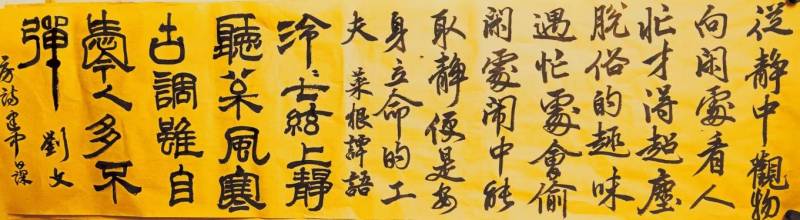 從静中觀物
向闲處看人
忙才得超塵
脱俗的趣味
遇忙處會偷
闲處闹中能
取静便是安
身立命的工
夫 菜根譚語
泠〻七絃上靜
聽枀風寒
古調雖自
愛今人多不
彈 劉文
房詩 日課